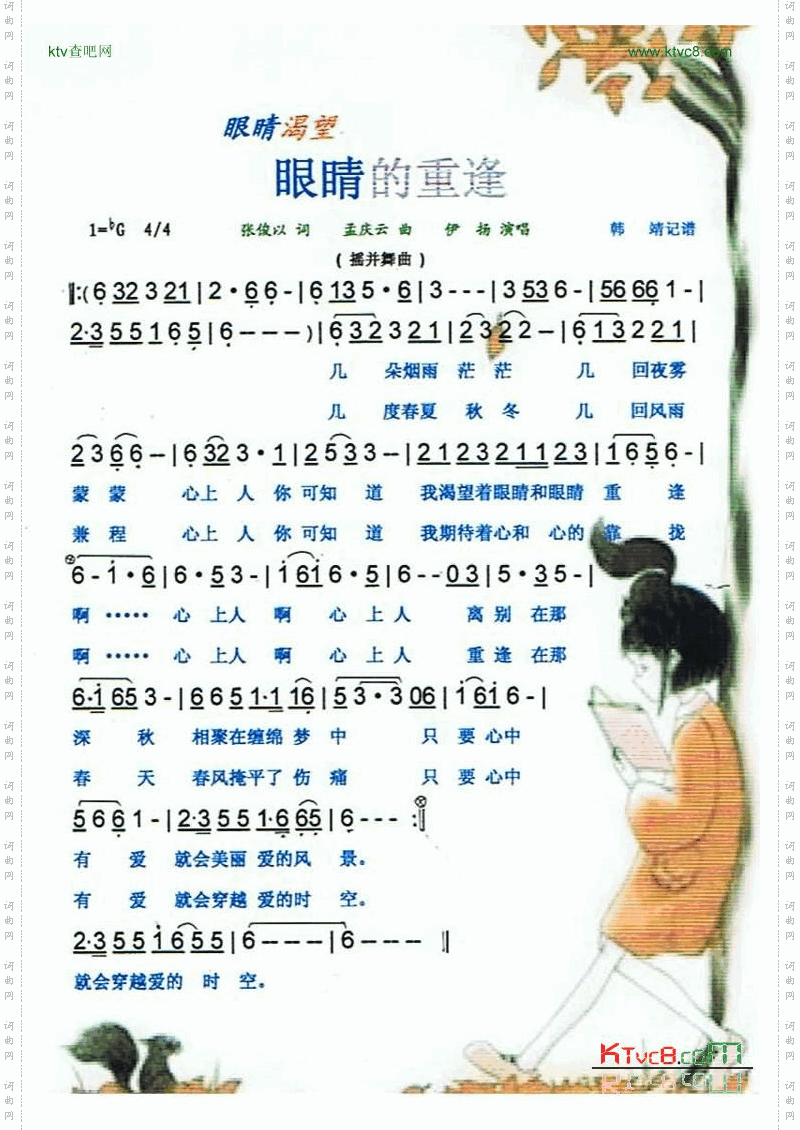 ktv查吧网 www.ktvc8.com
眼睛渴望
眼睛的重逢
1=♭G 4/4 张俊以 词 孟庆云 曲 伊 扬 演唱 韩 靖记谱
( 摇并舞曲 )
‖:( 6 32 3 21 | 2 · 6 6 - | 6 13 5 · 6 | 3 - - - | 3 53 6 - | 56 66 1 - |
2·3 5 5 1 6 5 | 6 - - - ) | 6 3 2 3 2 1 | 2 3 2 2 - - | 6 1 3 2 2 1 |
几 朵烟雨 茫 茫 几 回夜雾
几 度春夏 秋 冬 几 回风雨
2 3 6 6 - - | 6 32 3 · 1 | 2 5 3 3 - - | 2 1 2 3 2 1 1 2 3 | 1 6 5 6 - |
蒙 蒙 心上 人 你 可知 道 我渴望着眼睛和眼睛 重 逢
兼 程 心上 人 你 可知 道 我期待着心和 心的 靠 拢
6 - i · 6 | 6 · 5 3 - | i 6i 6 · 5 | 6 - - 0 3 | 5 · 3 5 - |
啊 ····· 心 上人 啊 心 上 人 离 别 在那
啊 ····· 心 上人 啊 心 上 人 重 逢 在那
6·i 65 3 - | 6 6 5 1·1 16 | 5 3 · 3 06 | i 6i 6 - |
深 秋 相聚在缠绵 梦 中 只 要 心中
春 天 春风掩平了 伤 痛 只 要 心中
5 6 6 1 - | 2·3 5 5 1·6 65 | 6 - - - :‖
有 爱 就会美丽 爱的风 景。
有 爱 就会穿越 爱的时 空。
2·3 5 5 i 6 5 5 | 6 - - - - | 6 - - - - ‖
就会穿越爱的 时 空。
KTvc8.com